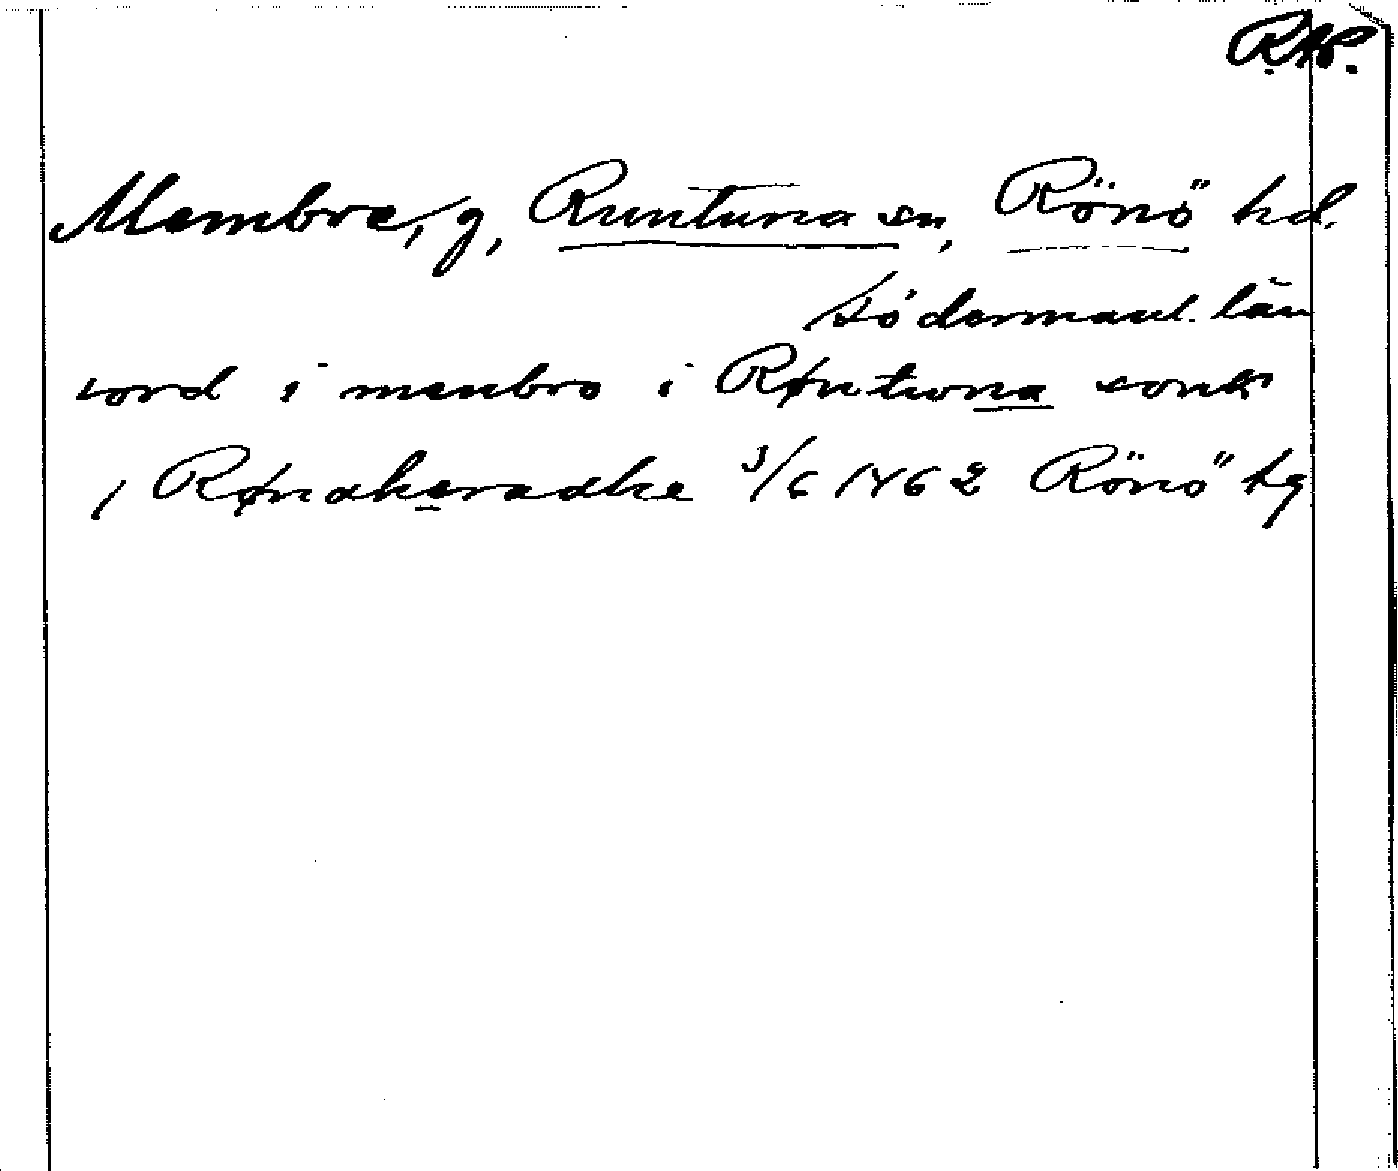 RAP.
Membre, g, Runtuna sn, Rönö hd.
Södermanl. län
iord i menbro i Røntuna sonk
i Røndheradhe 3/6 1462 Rönö tg